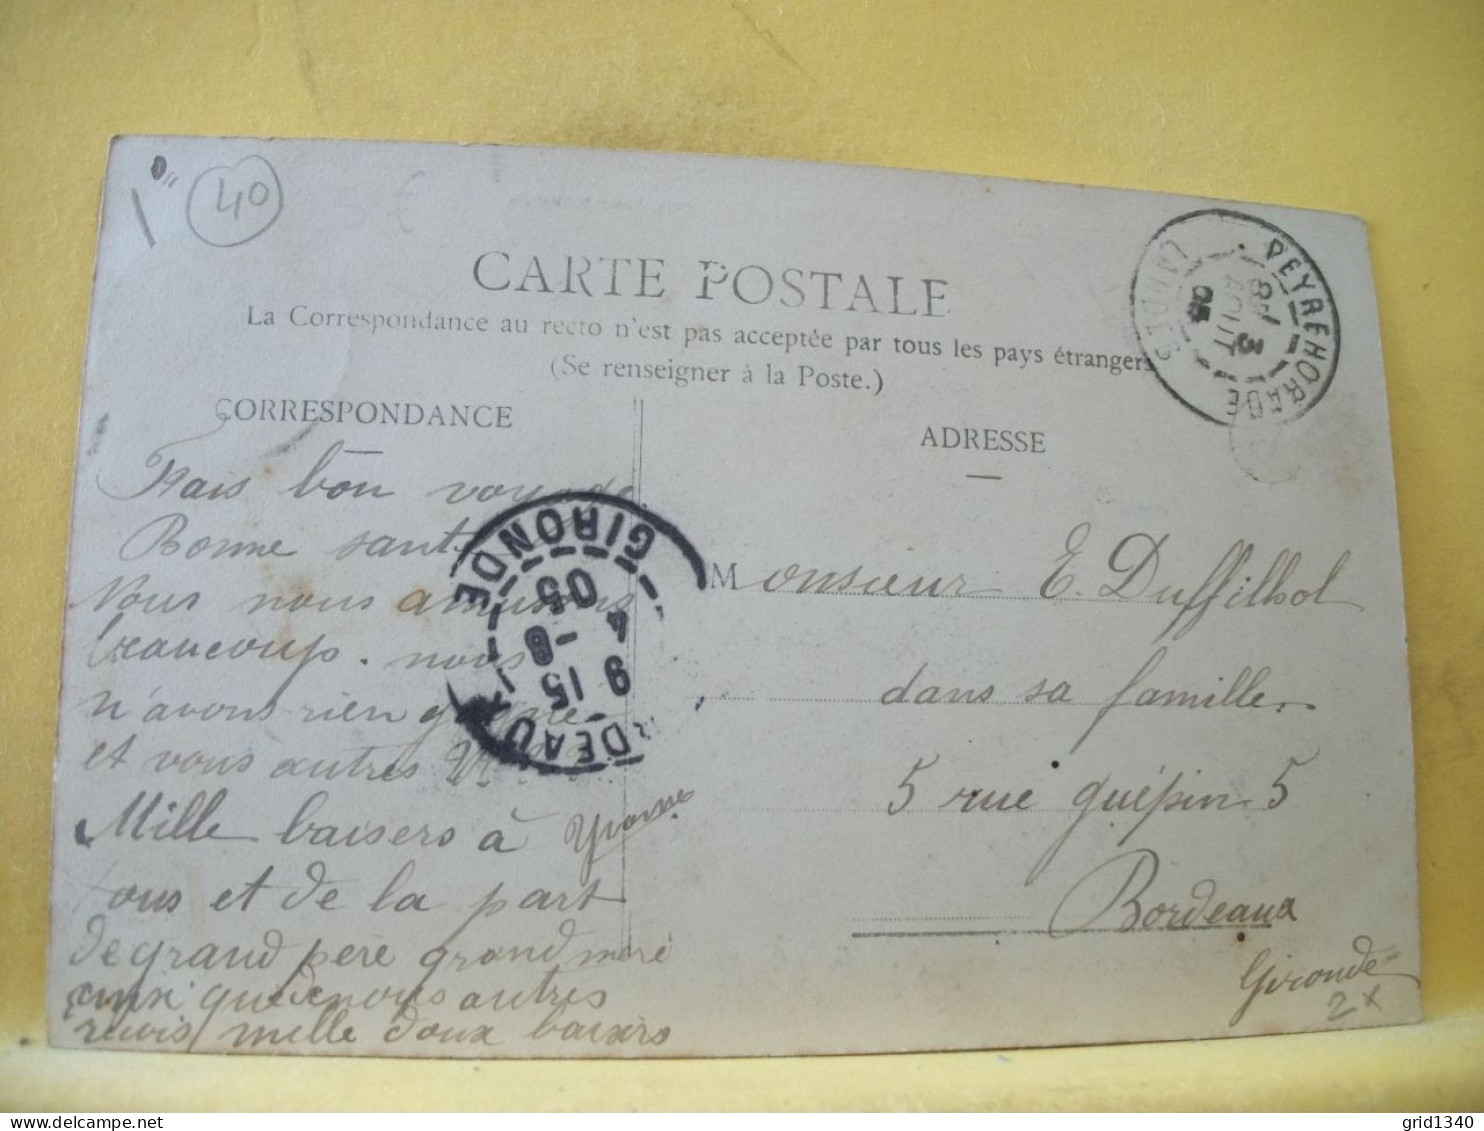 40
CARTE POSTALE
La Correspondance au recto n'est pas acceptée par tous les pays étrangers
(Se renseigner à la Poste.)
PEYREHORADE
LANDES
3
AOUT
05
CORRESPONDANCE
Fais bon voyage
Bonne santé
Nous nous amusons
beaucoup. nous
n'avons rien gagné
et vous autres
Mille baisers à
tous et de la part
de grand père grand mère
que nous autres
mille doux baisers
Yvonne
GIRONDE
9 15
4 -8
05
ADRESSE
Monsieur E. Duffilhol
dans sa famille.
5 rue guépin 5
Bordeaux
Gironde
2x
grid1340